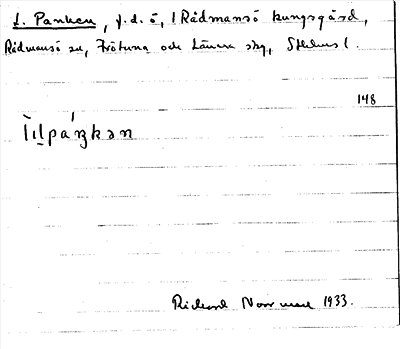 L. Panken, f.d. ö, i Rådmansö kungsgård,
Rådmansö sn, Frötuna och Länna skg, Sthlms l.
148
l̀ɪlpáŋkən
Rickard Norrman 1933.